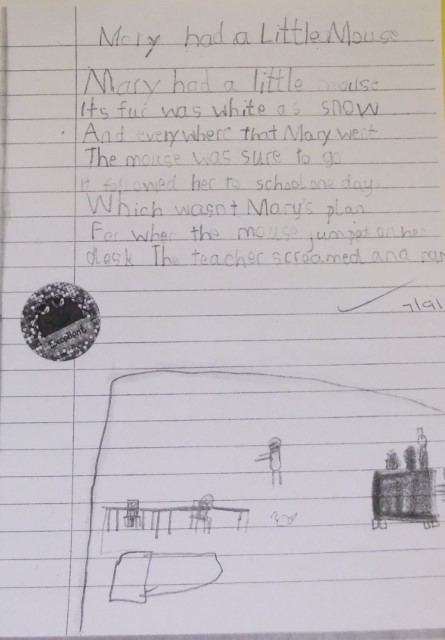 Mary had a Little Mouse
Mary had a little mouse
Its fur was white as snow
And everywhere that Mary went
The mouse was sure to go
It followed her to school one day
Which wasnt Mary's plan
For when the mouse jumped on her
desk The teacher screamed and ran
7/9/
Excellent